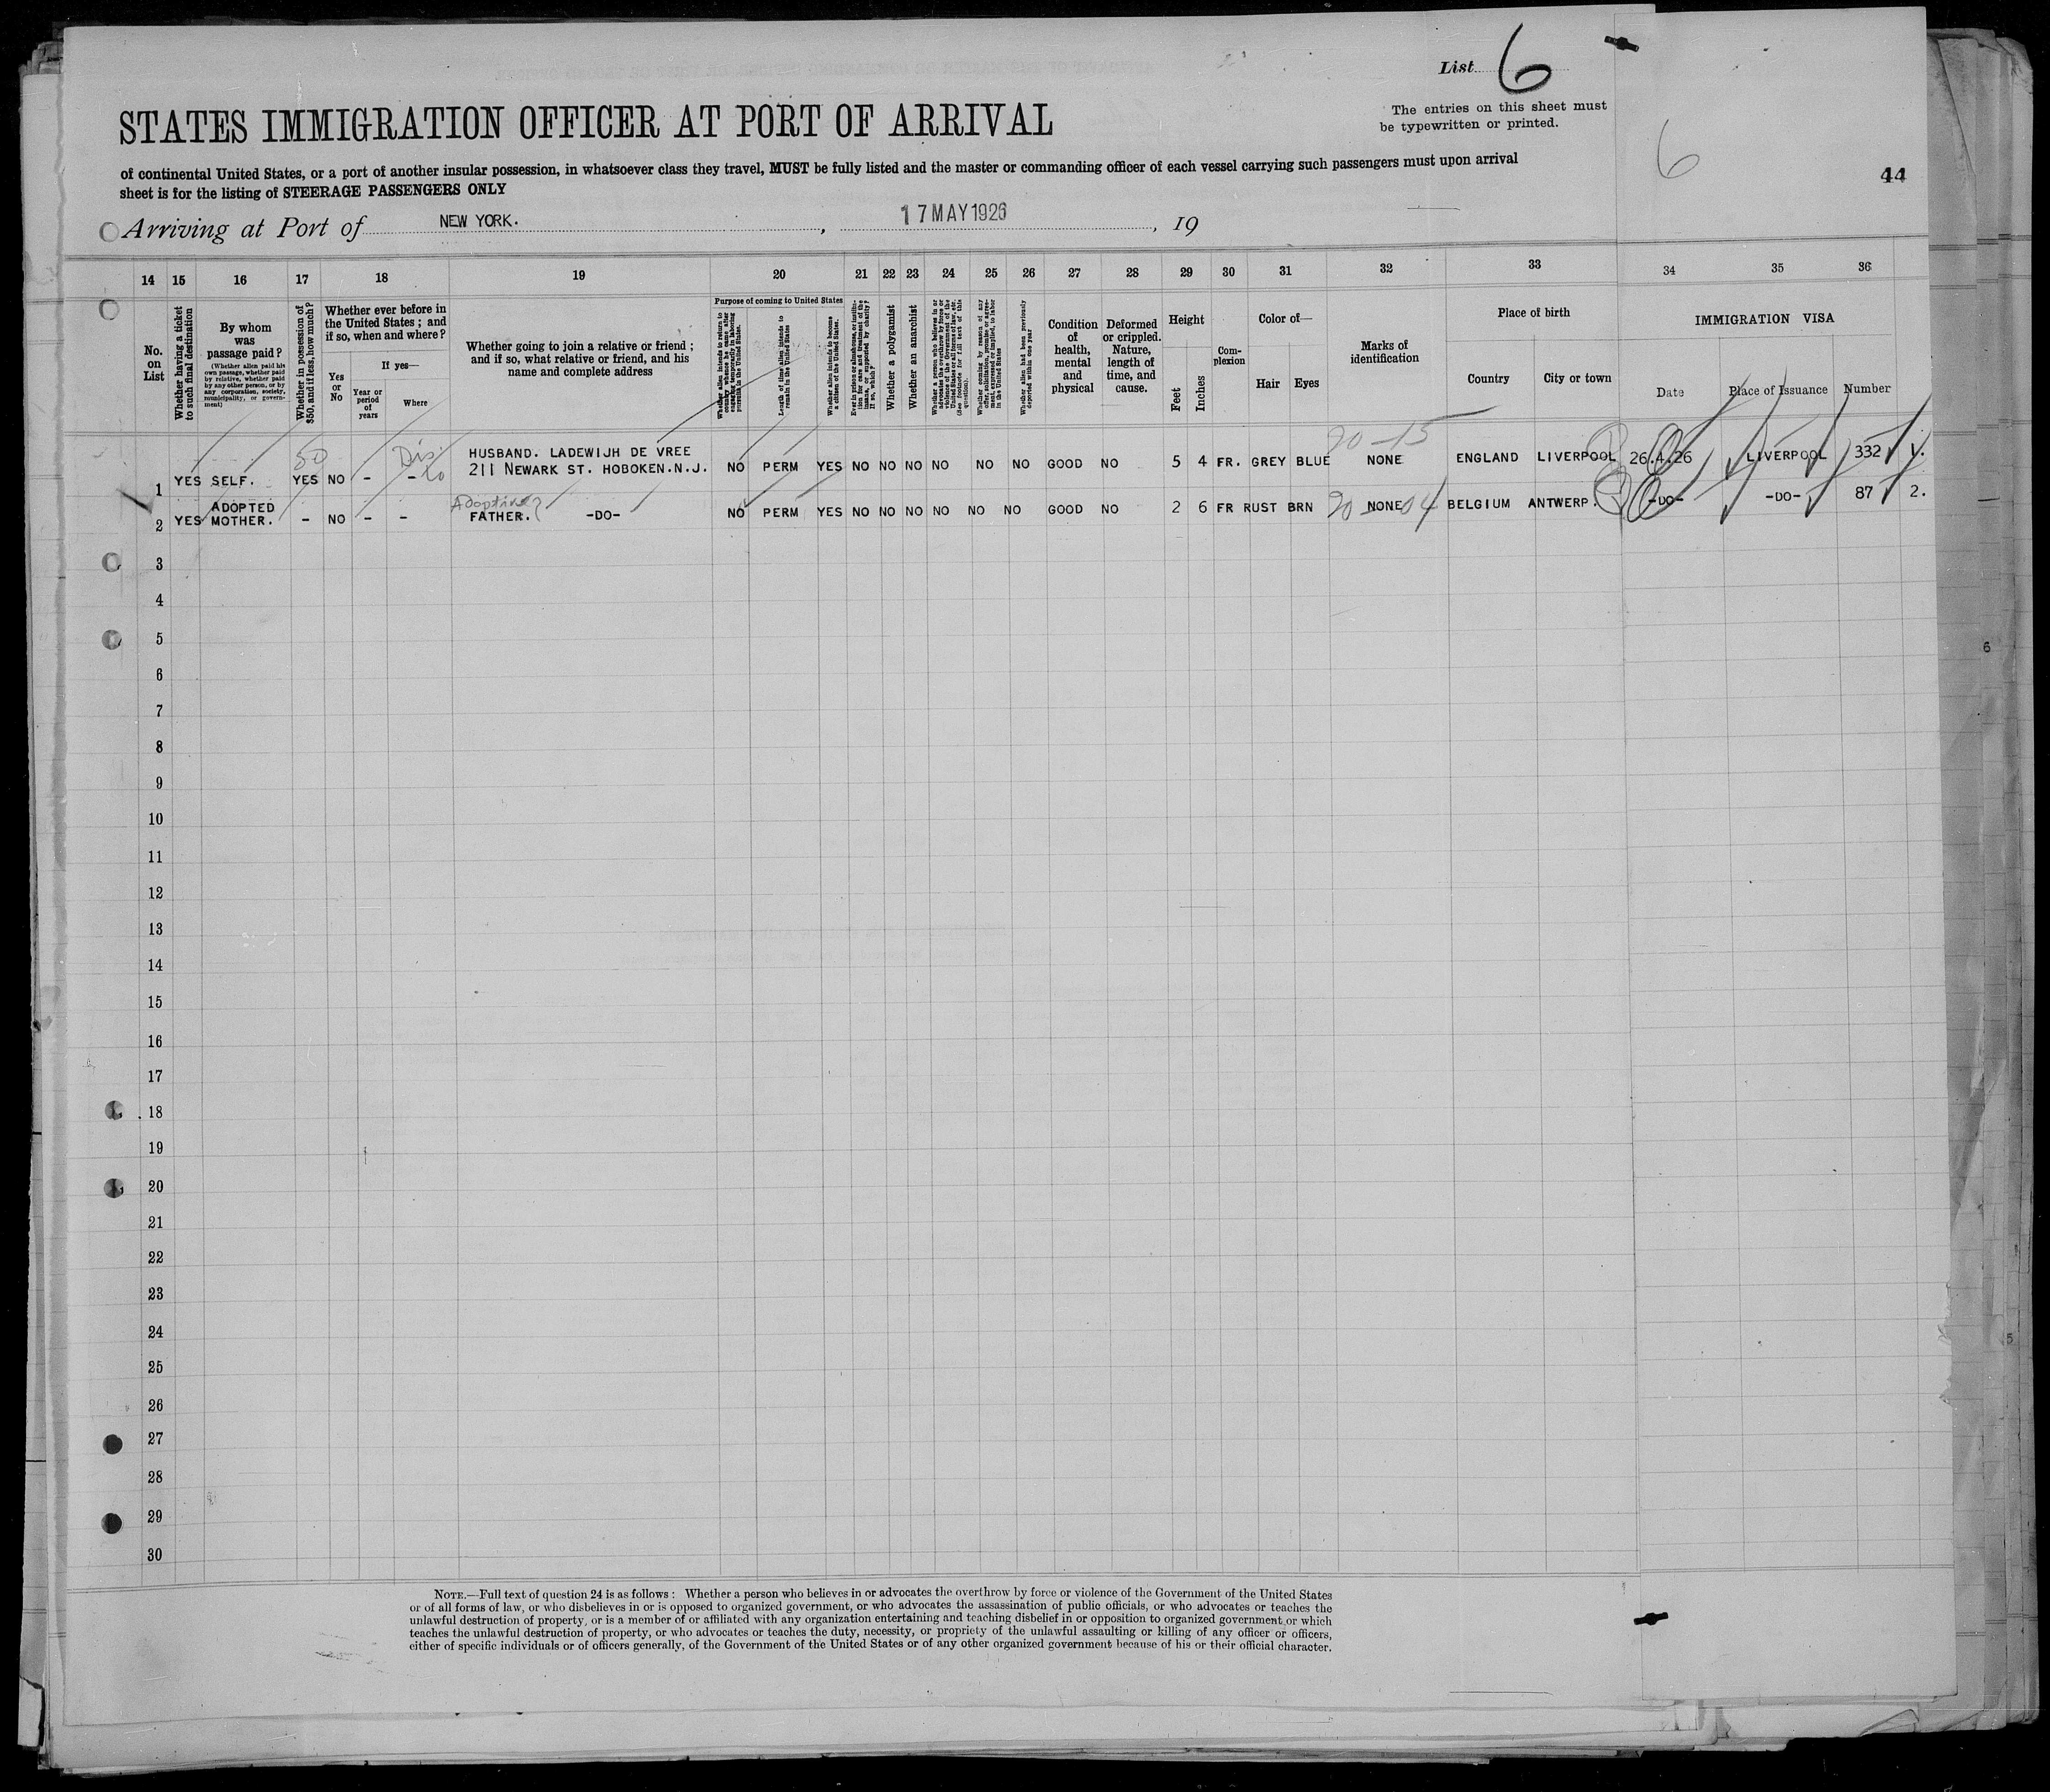 List 6
The entries on this sheet must
be typewritten or printed.
STATES IMMIGRATION OFFICER AT PORT OF ARRIVAL
6
44
of continental United States, or a port of another insular possession, in whatsoever class they travel, MUST be fully listed and the master or commanding officer of each vessel carrying such passengers must upon arrival
sheet is for the listing of STEERAGE PASSENGERS ONLY
Arriving at Port of NEW YORK. , 17 MAY 1926 , 19
14 15 16 17 18 19 20 21 22 23 24 25 26 27 28 29 30 31 32 33 34 35 36
No. on List
Whether having a ticket to such final destination
By whom was passage paid?
(Whether alien paid his own passage, whether paid by relative, whether paid by any other person, or by any corporation, society, municipality, or government)
Whether in possession of $50, and if less, how much?
Whether ever before in the United States; and if so, when and where?
Yes or No
If yes—
Year or period of years
Where
Whether going to join a relative or friend; and if so, what relative or friend, and his name and complete address
Purpose of coming to United States
Length of time alien intends to remain in the United States
Whether alien intends to become a citizen of the United States.
Whether a polygamist
Whether an anarchist
Whether alien had been previously deported within one year
Condition of health, mental and physical
Deformed or crippled. Nature, length of time, and cause.
Height
Feet
Inches
Complexion
Color of—
Hair
Eyes
Marks of identification
Place of birth
Country
City or town
IMMIGRATION VISA
Date
Place of Issuance
Number
50
20-15
1 YES SELF. YES NO - - HUSBAND. LADEWIJH DE VREE
211 NEWARK ST. HOBOKEN.N.J. NO PERM YES NO NO NO NO NO NO GOOD NO 5 4 FR. GREY BLUE NONE ENGLAND LIVERPOOL 26.4.26 LIVERPOOL 332 1.
Adoptive
2 YES ADOPTED MOTHER. - NO - - FATHER. -DO- NO PERM YES NO NO NO NO NO NO GOOD NO 2 6 FR RUST BRN NONE BELGIUM ANTWERP. -DO- -DO- 87 2.
3
4
5
6
7
8
9
10
11
12
13
14
15
16
17
18
19
20
21
22
23
24
25
26
27
28
29
30
6
5
NOTE.—Full text of question 24 is as follows: Whether a person who believes in or advocates the overthrow by force or violence of the Government of the United States
or of all forms of law, or who disbelieves in or is opposed to organized government, or who advocates the assassination of public officials, or who advocates or teaches the
unlawful destruction of property, or is a member of or affiliated with any organization entertaining and teaching disbelief in or opposition to organized government, or which
teaches the unlawful destruction of property, or who advocates or teaches the duty, necessity, or propriety of the unlawful assaulting or killing of any officer or officers,
either of specific individuals or of officers generally, of the Government of the United States or of any other organized government because of his or their official character.